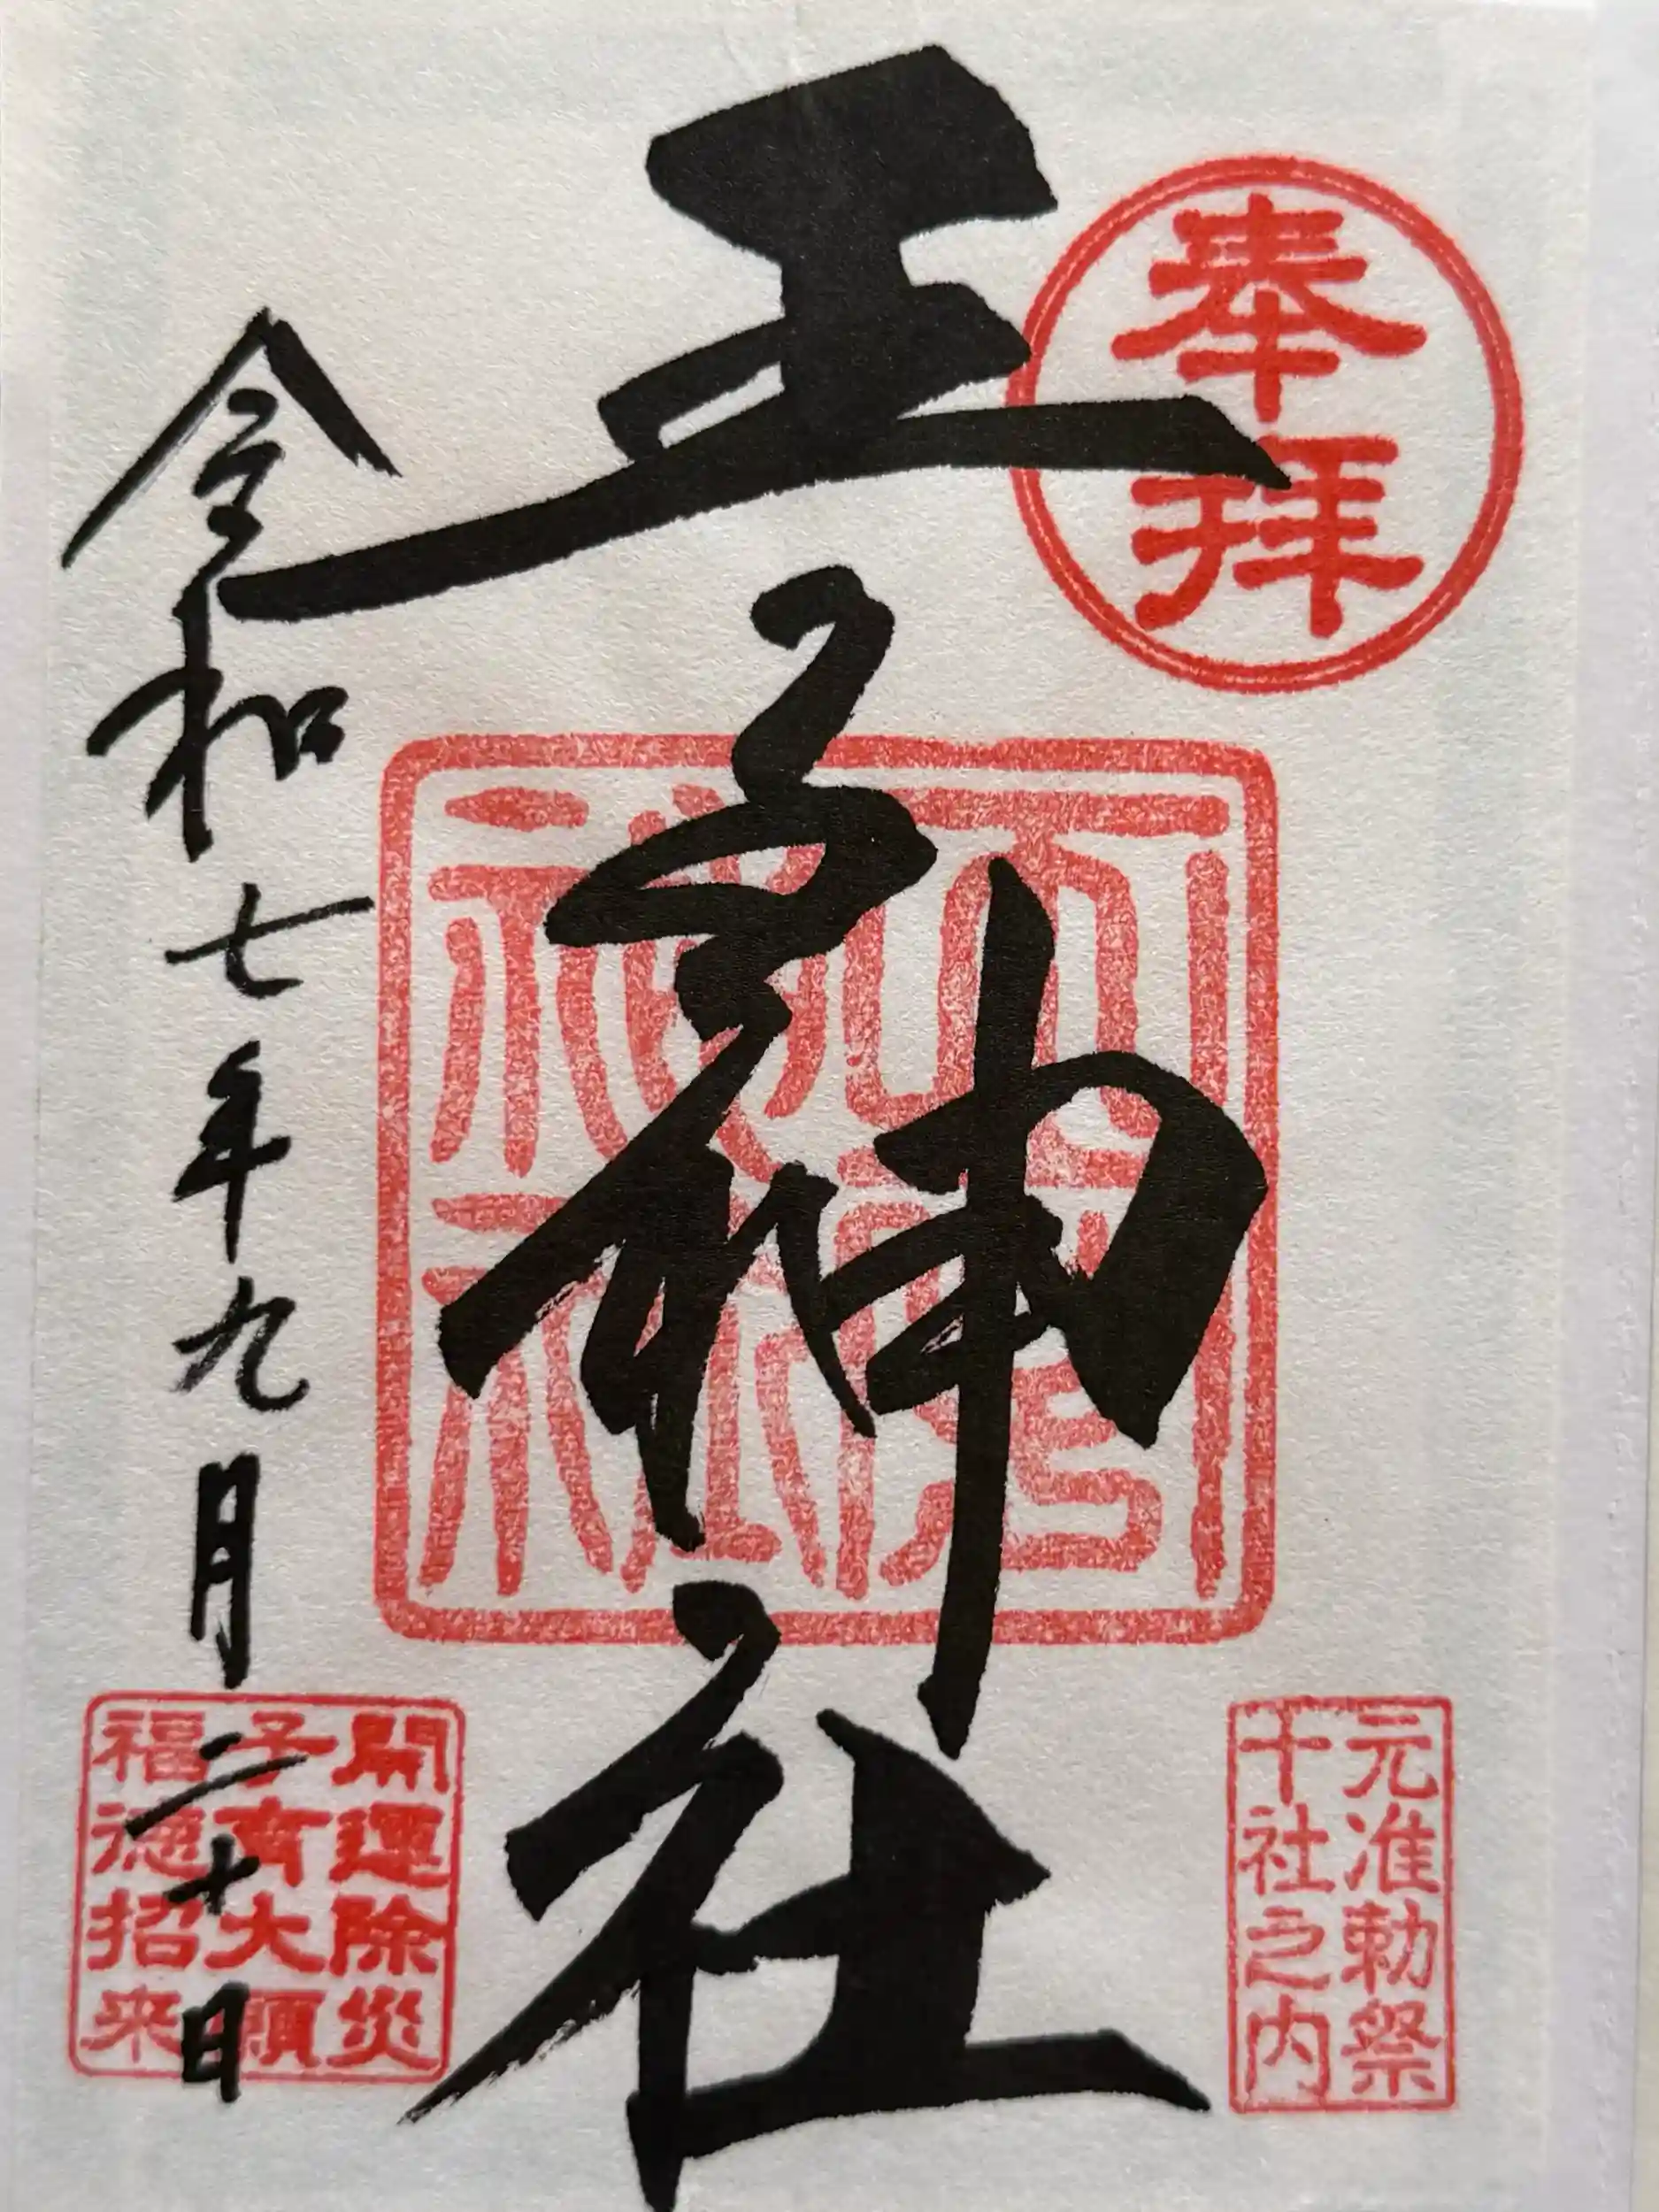 奉拝
元准勅祭
十社之内
王子神社
令和七年九月二十日
開運除災
子育大願
福徳招来